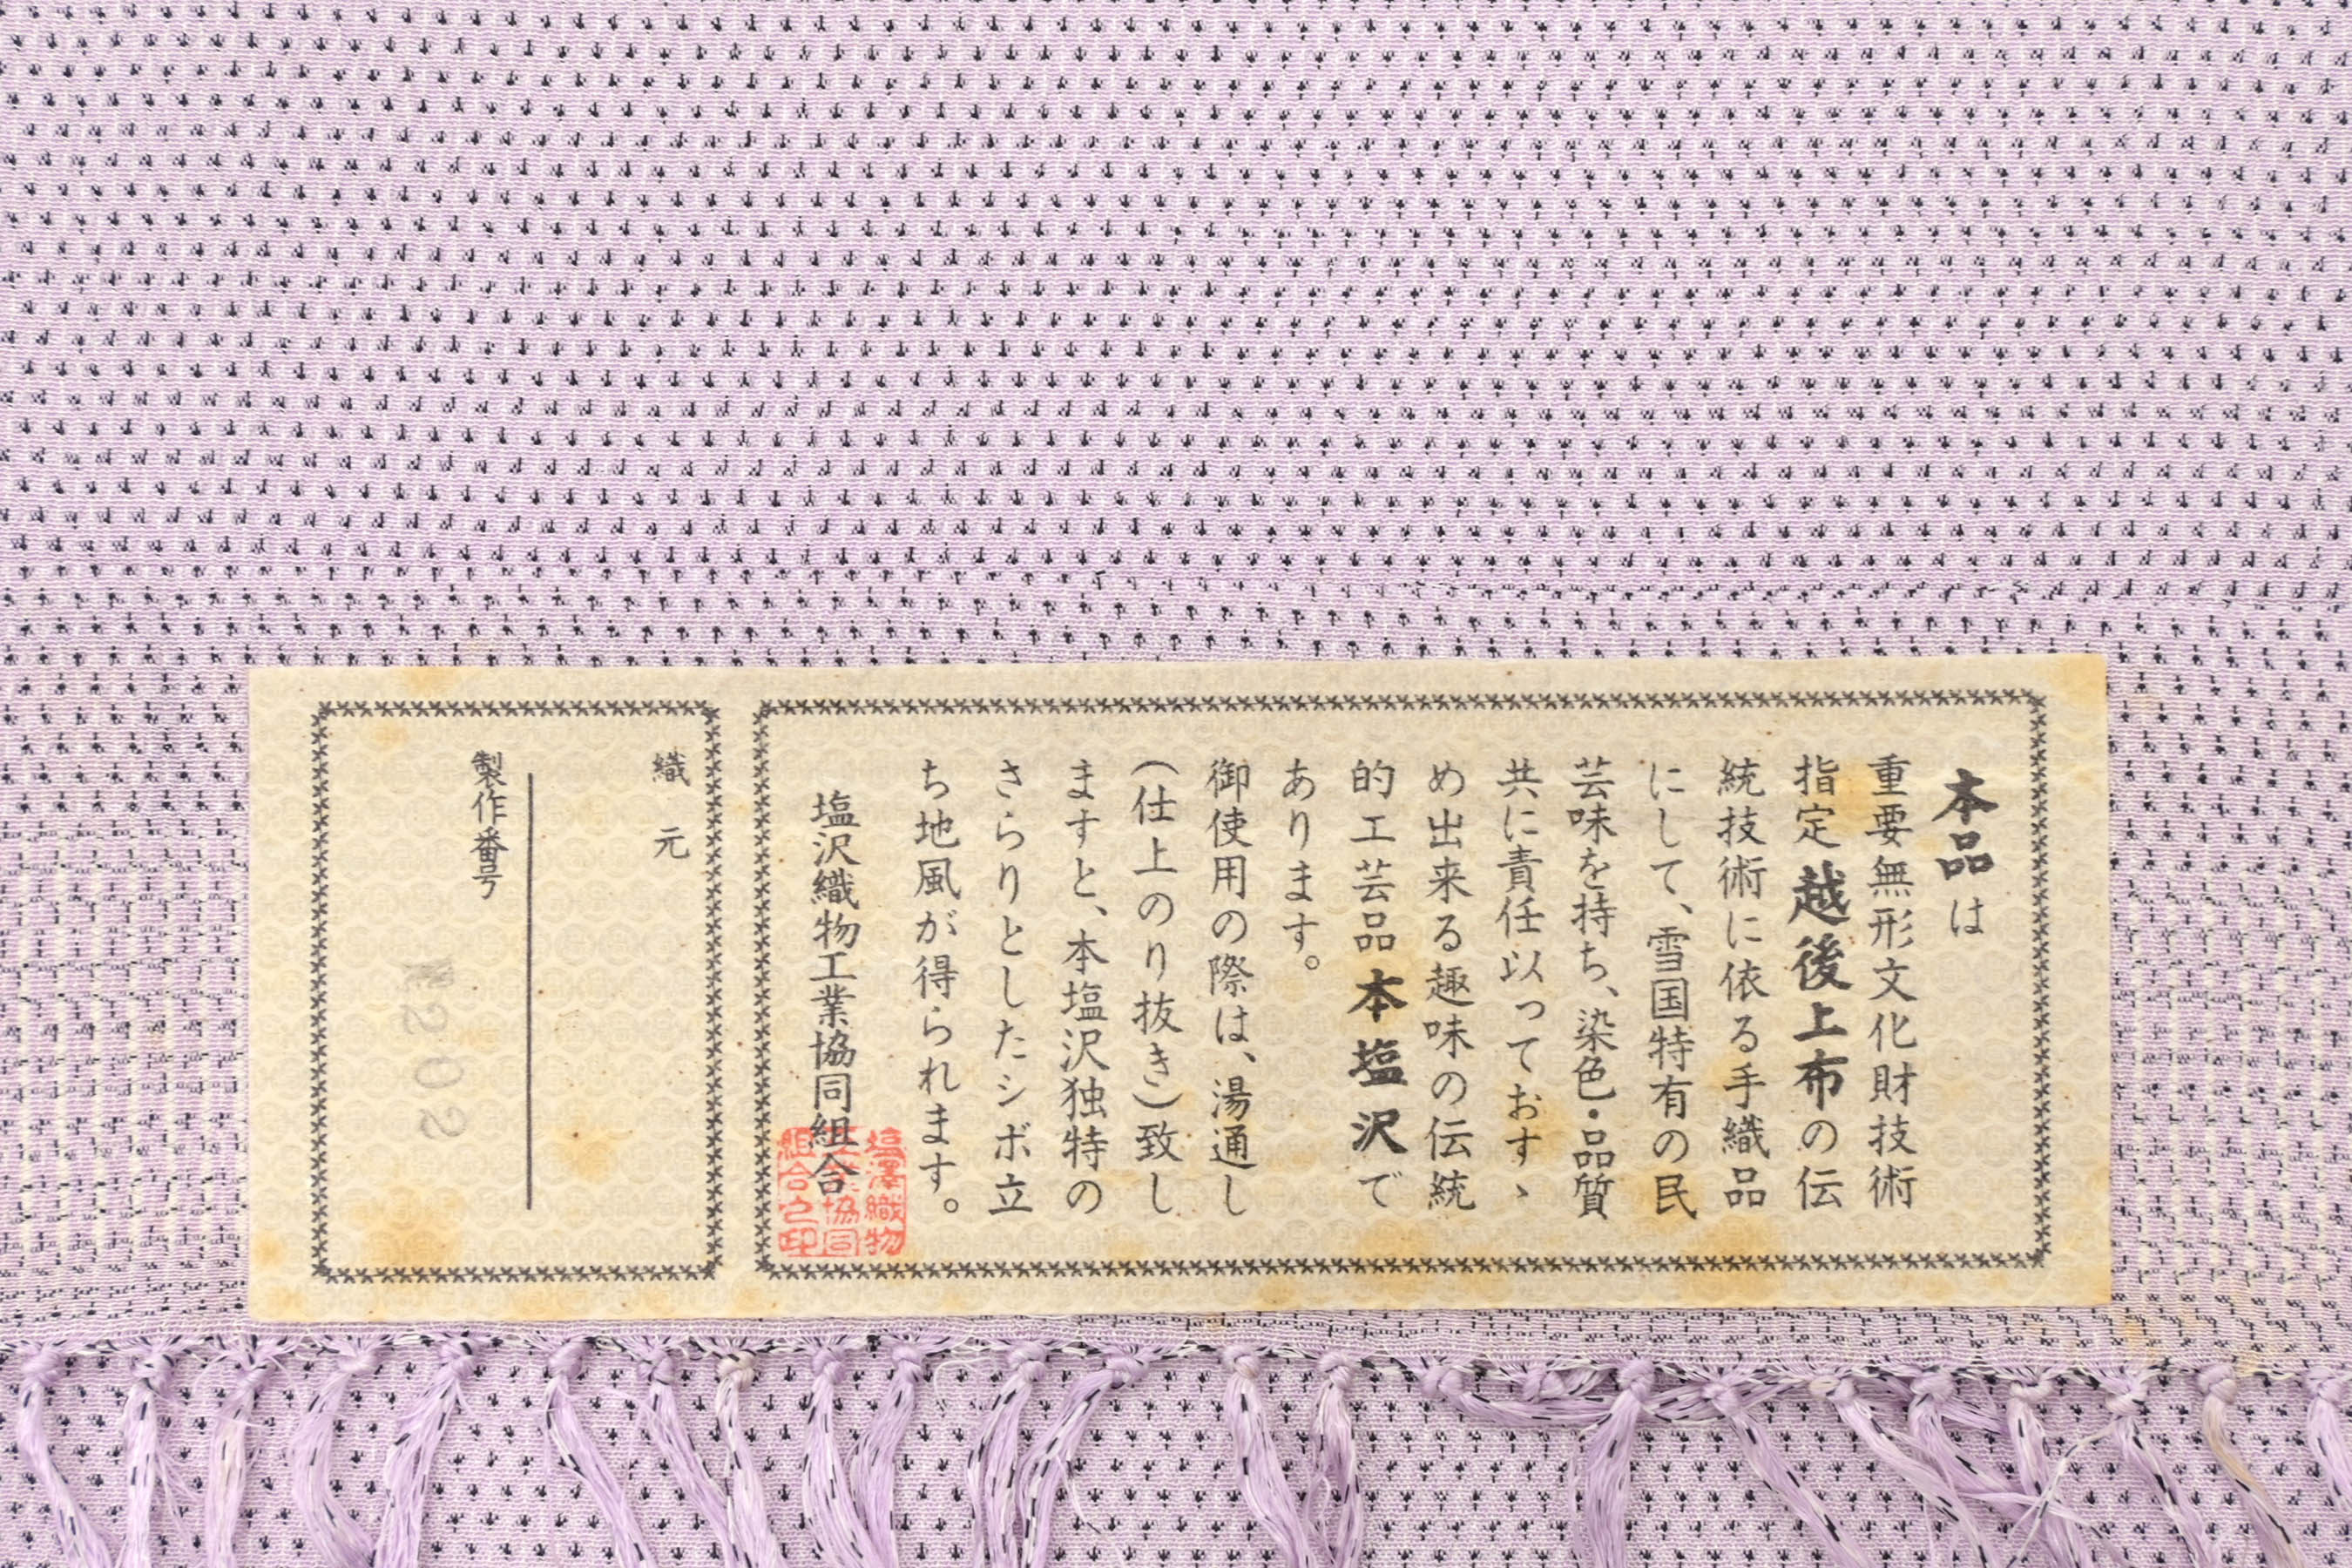 本品は
重要無形文化財技術
指定越後上布の伝
統技術に依る手織品
にして、雪国特有の民
芸味を持ち、染色・品質
共に責任以っておすゝ
め出来る趣味の伝統
的工芸品本塩沢で
あります。
御使用の際は、湯通し
(仕上のり抜き)致し
ますと、本塩沢独特の
さらりとしたシボ立
ち地風が得られます。
塩沢織物工業協同組合
塩澤織物
工業協同
組合之印
織元
製作番号